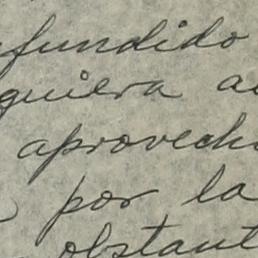 fundido
quiera a
aprovech
por la
obstant